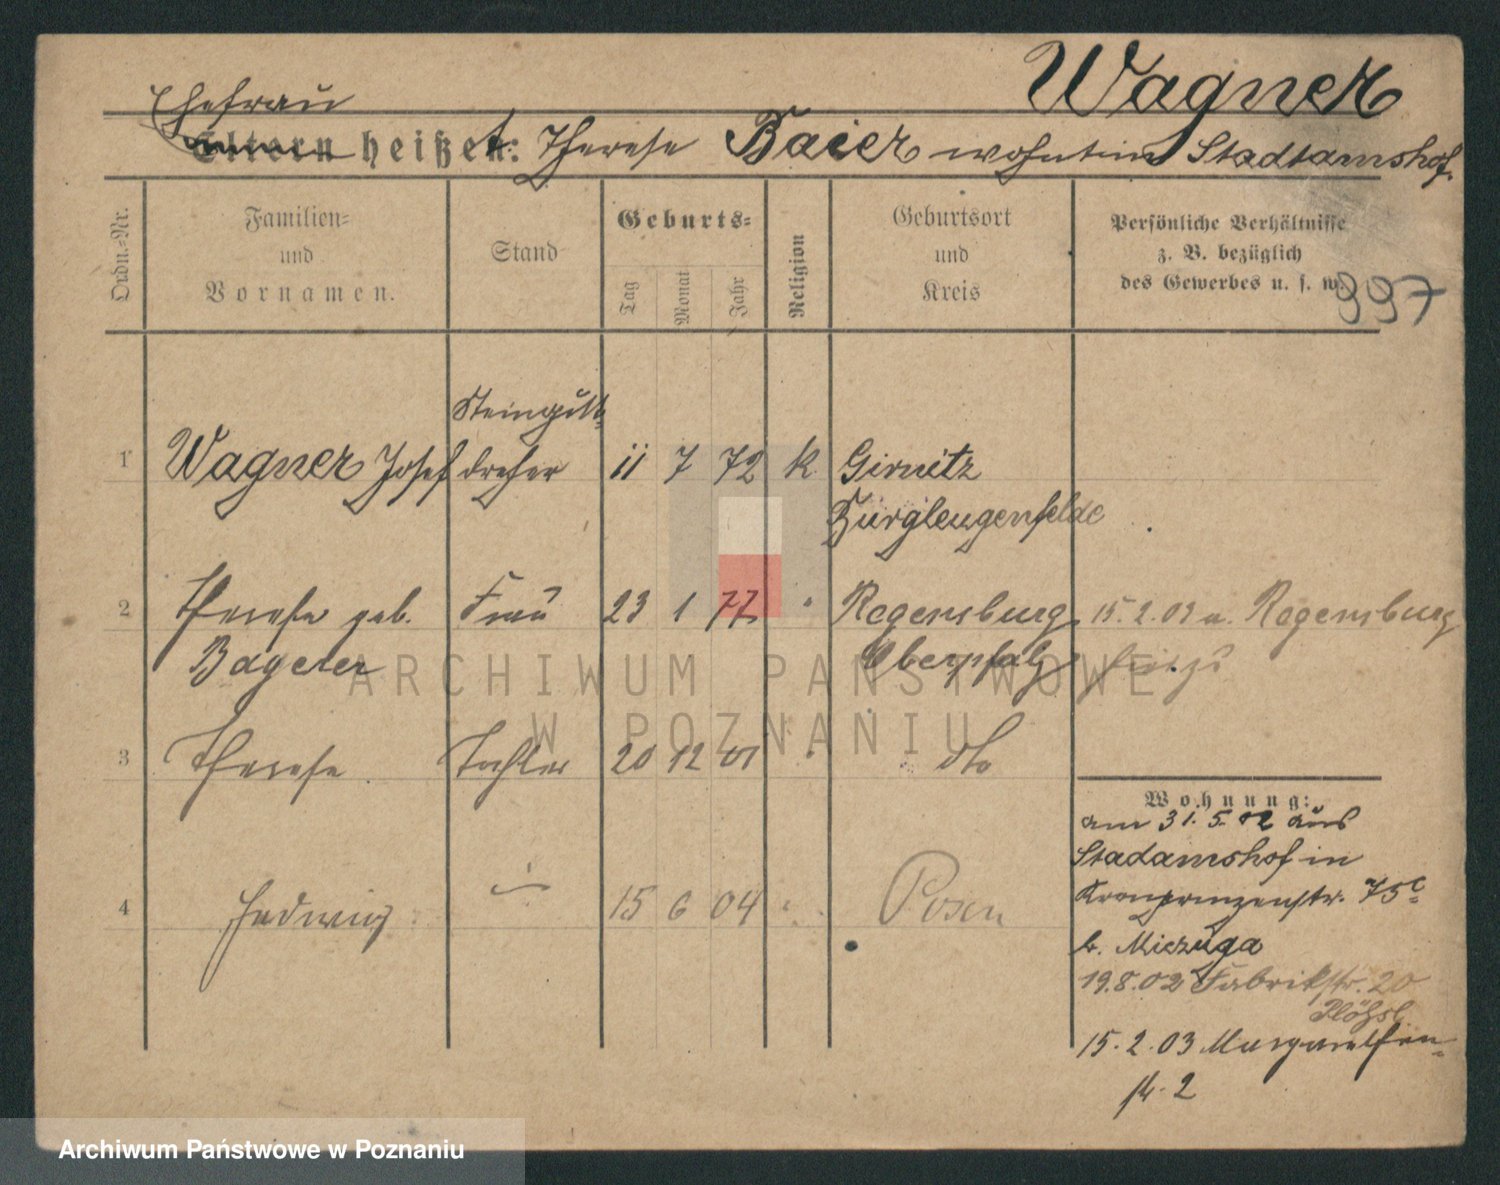 Wagner
Ehefrau
Eltern heißen: Therese Baier wohnt in Stadtamshof.
Ordn.-Nr.
Familien-
und
Vornamen.
Stand
Geburts-
Tag
Monat
Jahr
Religion
Geburtsort
und
Kreis
Persönliche Verhältnisse
z. B. bezüglich
des Gewerbes u. s. w.
997
Steingutt-
1 Wagner Josef dreher 11 7 72 k Girnitz
Burglengenfelde
2 Therese geb. Frau 23 1 77 " Regensburg 15.2.02 a. Regensburg
Bageter Oberpfalz
3 Therese Tochter 20 12 01 " dto
Wohnung:
am 31.5.02 aus
Stadamshof in
4 Hedwig 15 6 04 " Posen
Kronprinzenstr. 75c
b. Miezuga
19.8.02 Fabrikstr. 20
15.2.03 Margarethen-
str. 2
ARCHIWUM PAŃSTWOWE
W POZNANIU
Archiwum Państwowe w Poznaniu